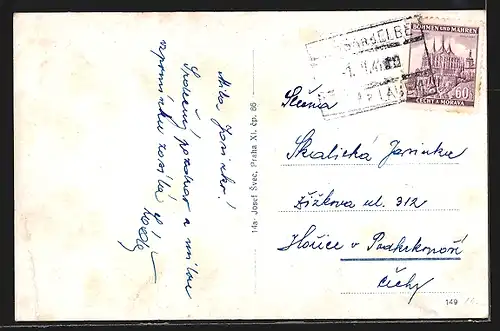 Milá Jarinko!
Srdečný pozdrav a milou
vzpomínku zasílá
14a- Josef Švec, Praha XI. čp. 66
BÖHMEN UND MÄHREN
60
ČECHY A MORAVA
Slečna
Skalická Jarinka
Žižkova ul. 312
Hořice v Podkrkonoší
Čechy
149